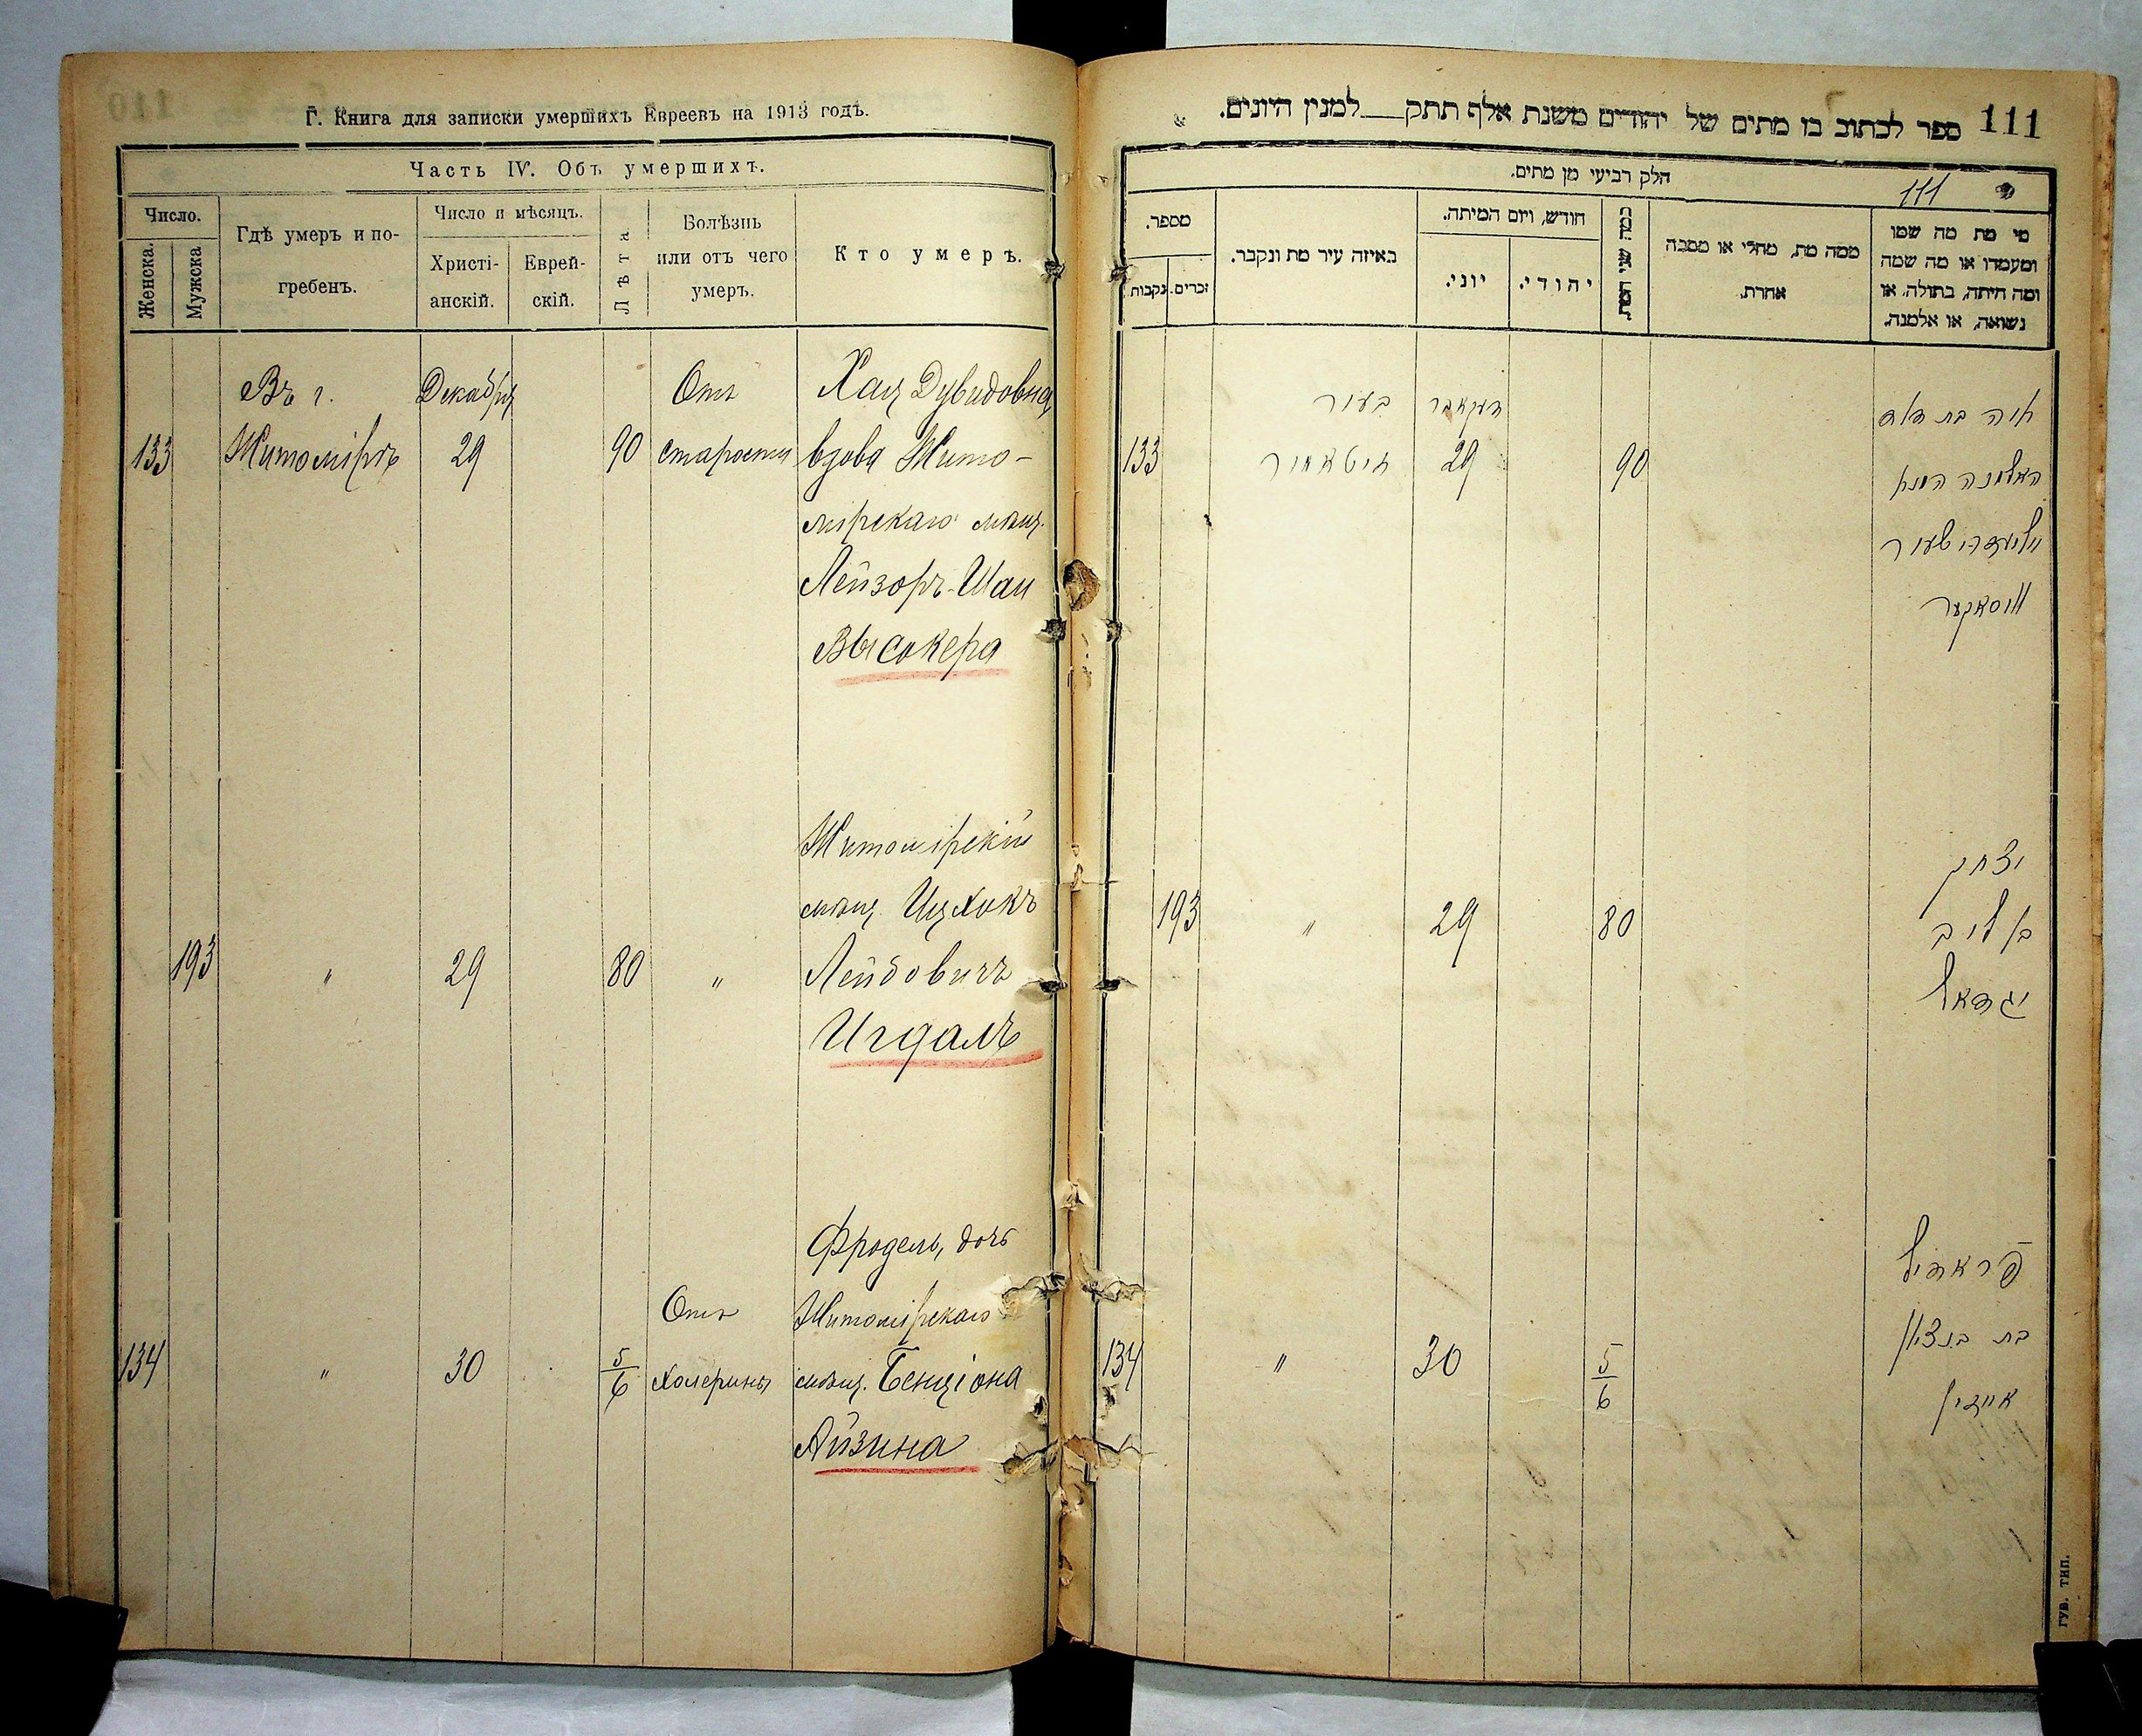 Г. Книга для записки умершихъ Евреевъ на 1913 годъ.
Часть IV. Объ умершихъ.
Число.
Женска.
Мужска
Гдѣ умеръ и по-
гребенъ.
Число и мѣсяцъ.
Христі-
анскій.
Еврей-
скій.
Лѣта
Болѣзнь
или отъ чего
умеръ.
Кто умеръ.
Въ г. Декабря Отъ Хая Дувидовна,
133 Житоміръ 29 90 старости вдова Жито-
мірскаго мѣщ.
Лейзоръ-Шаи
Высокера
Житомірскій
мѣщ. Ицхокъ
193 " 29 80 " Лейбовичъ
Игдалъ
Фродель, дочь
Отъ Житомірскаго
134 " 30 5/6 холерины мѣщ. Бенціона
Айзина
111 ספר לכתוב בו מתים של יהודים משנת אלף תתק למנין היונים.
חלק רביעי מן מתים.
111
מספר.
זכרים.
נקבות
באיזה עיר מת ונקבר.
חודש, ויום המיתה.
יוני.
יהודי.
כמה שני המת.
ממה מת, מחלי או מסבה
אחרת.
מי מת מה שמו
ומעמדו או מה שמה
ומה היתה, בתולה, או
נשואה, או אלמנה.
בעיר דעקאבר
133 זיטאמיר 29 90
וויסאקער
יצחק
193 " 29 80 בן ליב
יגדאל
פראדיל
בת בנציון
134 " 30 5/6
אייזין
губ. тип.